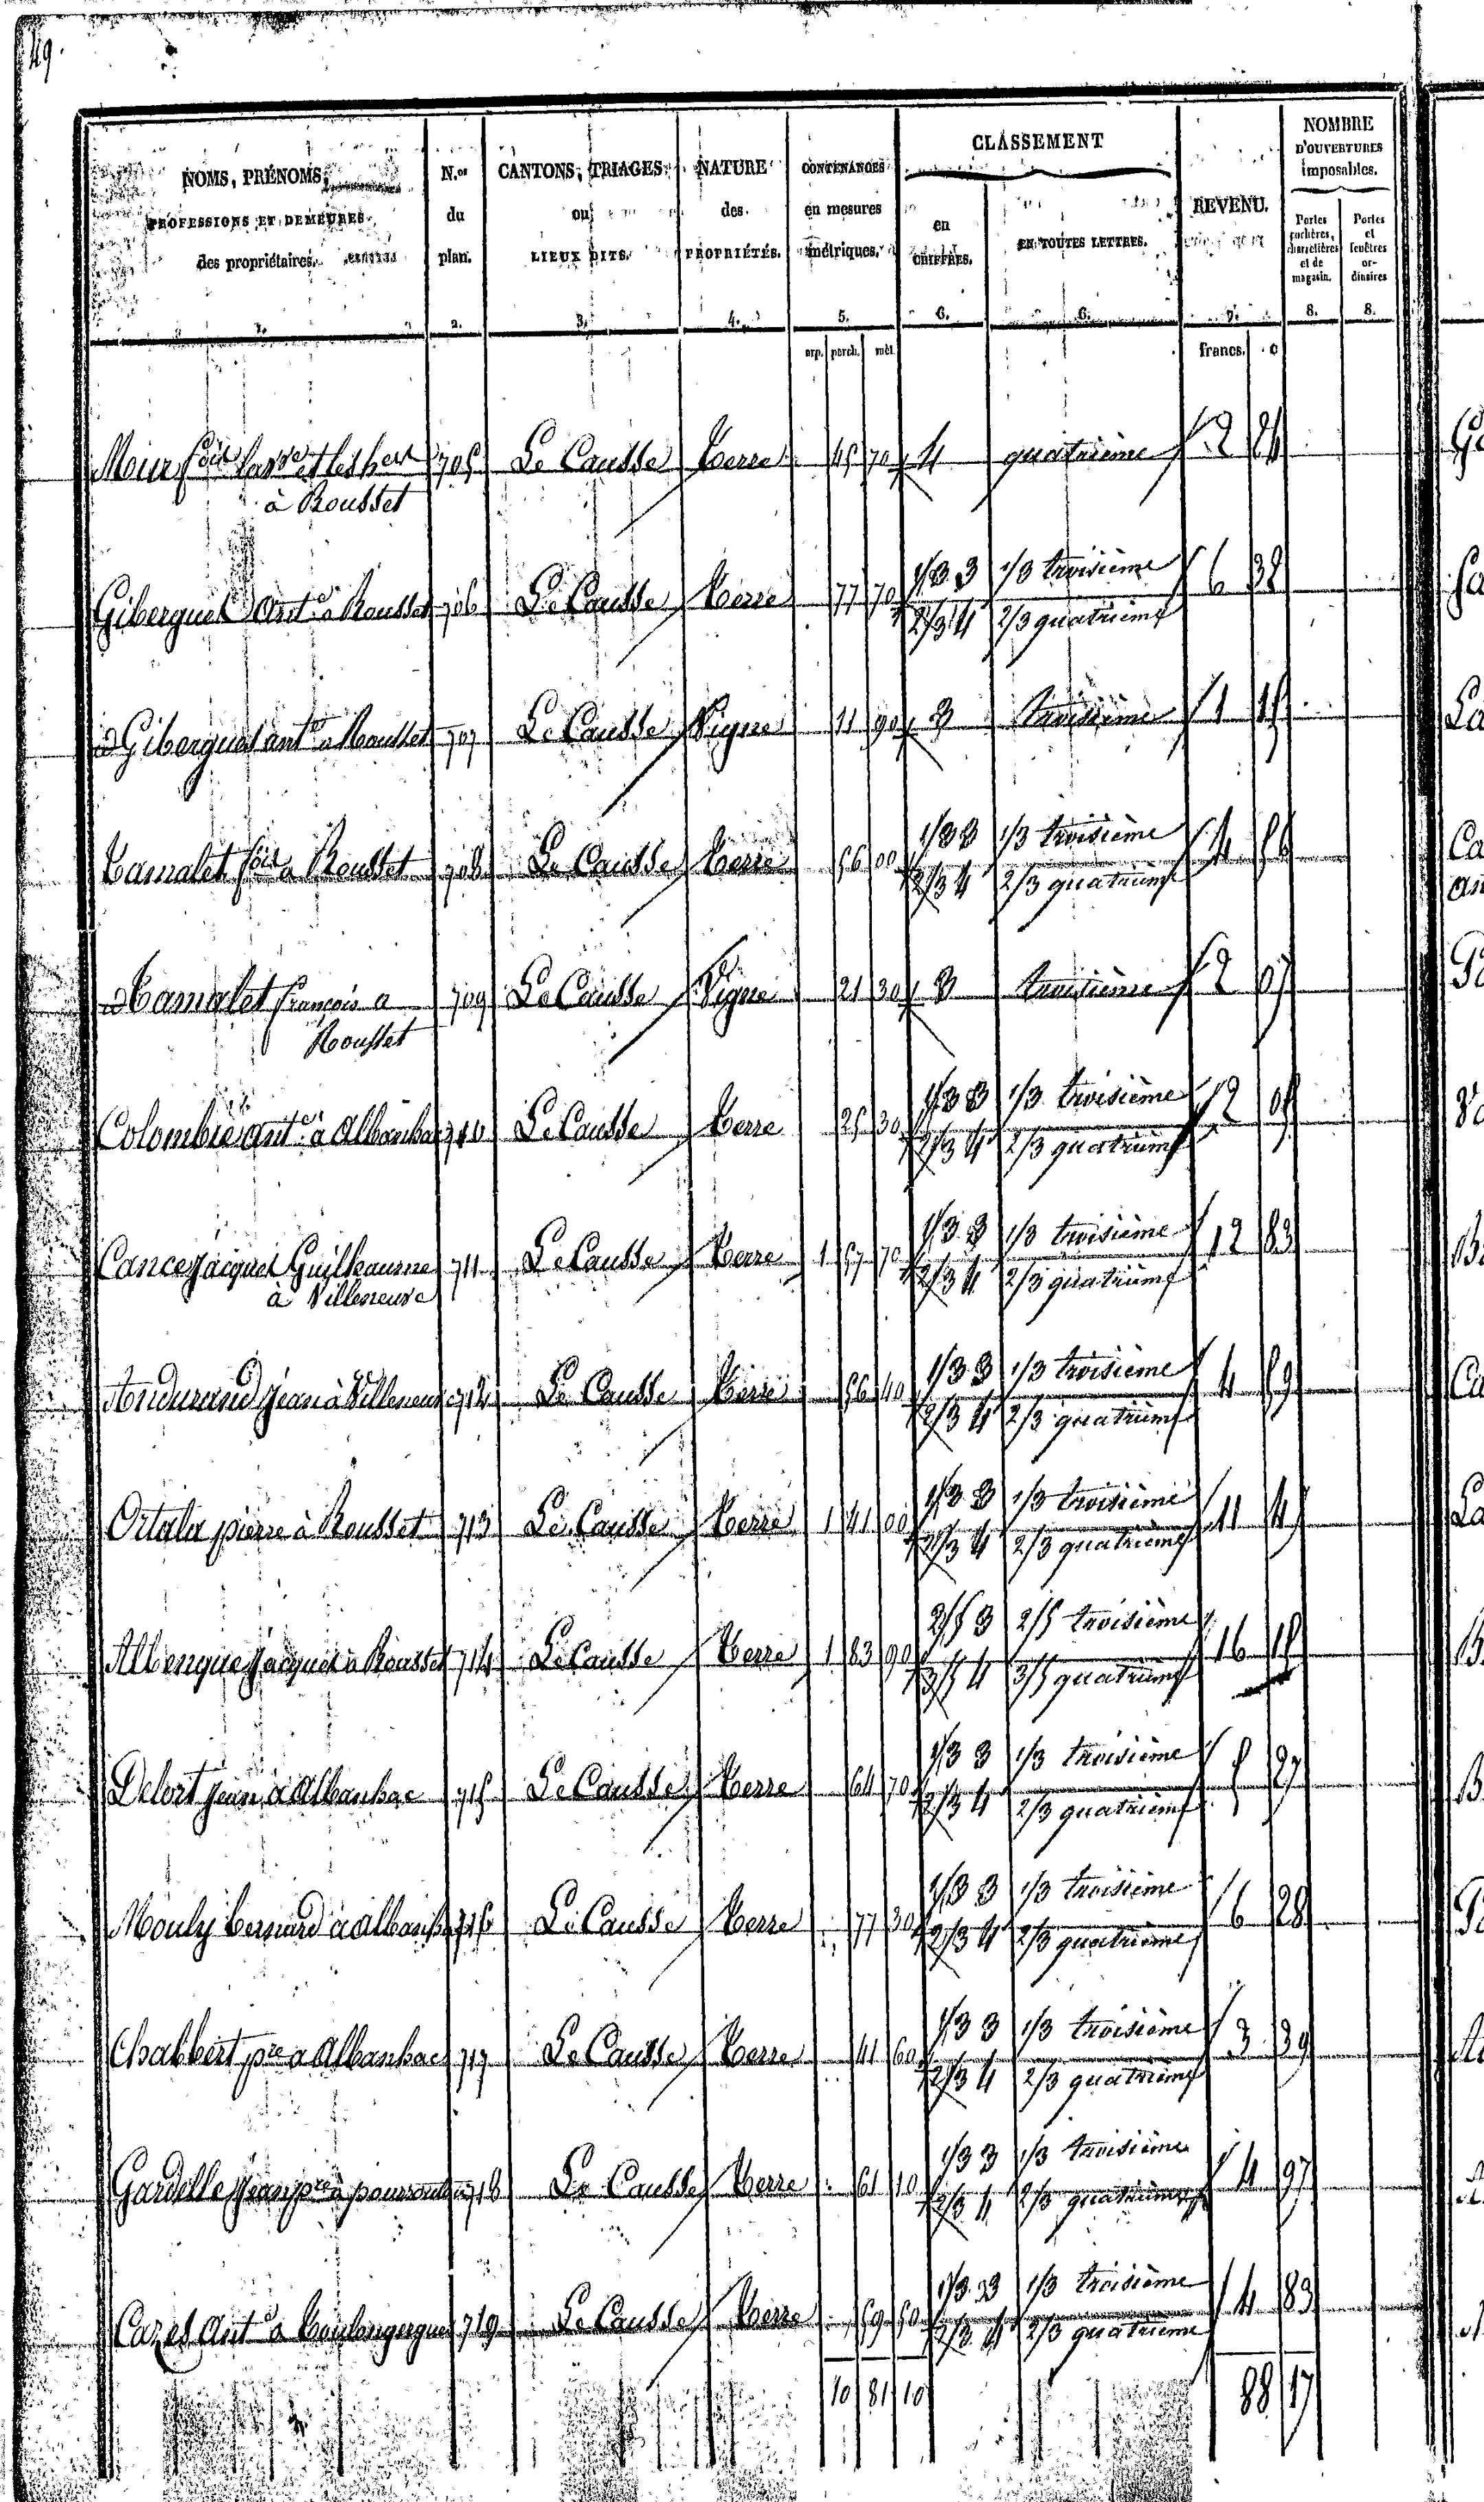 49.
NOMS, PRÉNOMS,
PROFESSIONS ET DEMEURES
des propriétaires.
1.
N.os
du
plan.
2.
CANTONS, TRIAGES
ou
LIEUX DITS.
3.
NATURE
des
PROPRIÉTÉS.
4.
CONTENANCES
en mesures
métriques.
5.
CLASSEMENT
en
CHIFFRES.
6.
EN TOUTES LETTRES.
6.
REVENU.
7.
NOMBRE
D'OUVERTURES
imposables.
Portes
cochères,
charretières
et de
magasin.
8.
Portes
et
fenêtres
or-
dinaires
8.
arp. perch. mèt. francs. c
705 Le Causse Terre 45 70 4 quatrième 2 24
à Rousset
1/3 3 1/3 troisième
Giberguet Ant.e à Rousset 706 Le Causse Terre 77 70 6 32
2/3 4 2/3 quatrième
Giberguet ant.e à Rousset 707 Le Causse Vigne 11 90 3 troisième 1 15
1/3 3 1/3 troisième
Tamalet fois à Rousset 708 Le Causse Terre 56 00 4 56
2/3 4 2/3 quatrième
Tamalet françois a 709 Le Causse Vigne 21 30 3 troisième 2 07
Rousset
1/3 3 1/3 troisième
Colombié ant.e à Albanhac 710 Le Causse Terre 25 30 2 05
2/3 4 2/3 quatrième
1/3 3 1/3 troisième
Cance Jacques Guilheaume 711 Le Causse Terre 1 57 70 12 83
à Villeneuve
2/3 4 2/3 quatrième
1/3 3 1/3 troisième
Andurand Jean à Villeneuve 712 Le Causse Terre 56 40 4 59
2/3 4 2/3 quatrième
1/3 3 1/3 troisième
pierre à Rousset 713 Le Causse Terre 1 41 00 11 47
2/3 4 2/3 quatrième
2/5 3 2/5 troisième
Albenque Jacques à Rousset 714 Le Causse Terre 1 83 90 16 18
3/5 4 3/5 quatrième
1/3 3 1/3 troisième
Delort Jean à Albanhac 715 Le Causse Terre 64 70 5 27
2/3 4 2/3 quatrième
1/3 3 1/3 troisième
Mouly bernard à albanh 716 Le Causse Terre 77 30 6 28
2/3 4 2/3 quatrième
1/3 3 1/3 troisième
Chabbert pre a Albanhac 717 Le Causse Terre 41 60 3 39
2/3 4 2/3 quatrième
1/3 3 1/3 troisième
Gardelle Jean pre à 718 Le Causse Terre 61 10 4 97
2/3 4 2/3 quatrième
1/3 3 1/3 troisième
Cazes Ant.e à Toulongergues 719 Le Causse Terre 59 50 4 83
2/3 4 2/3 quatrième
10 81 10 88 17